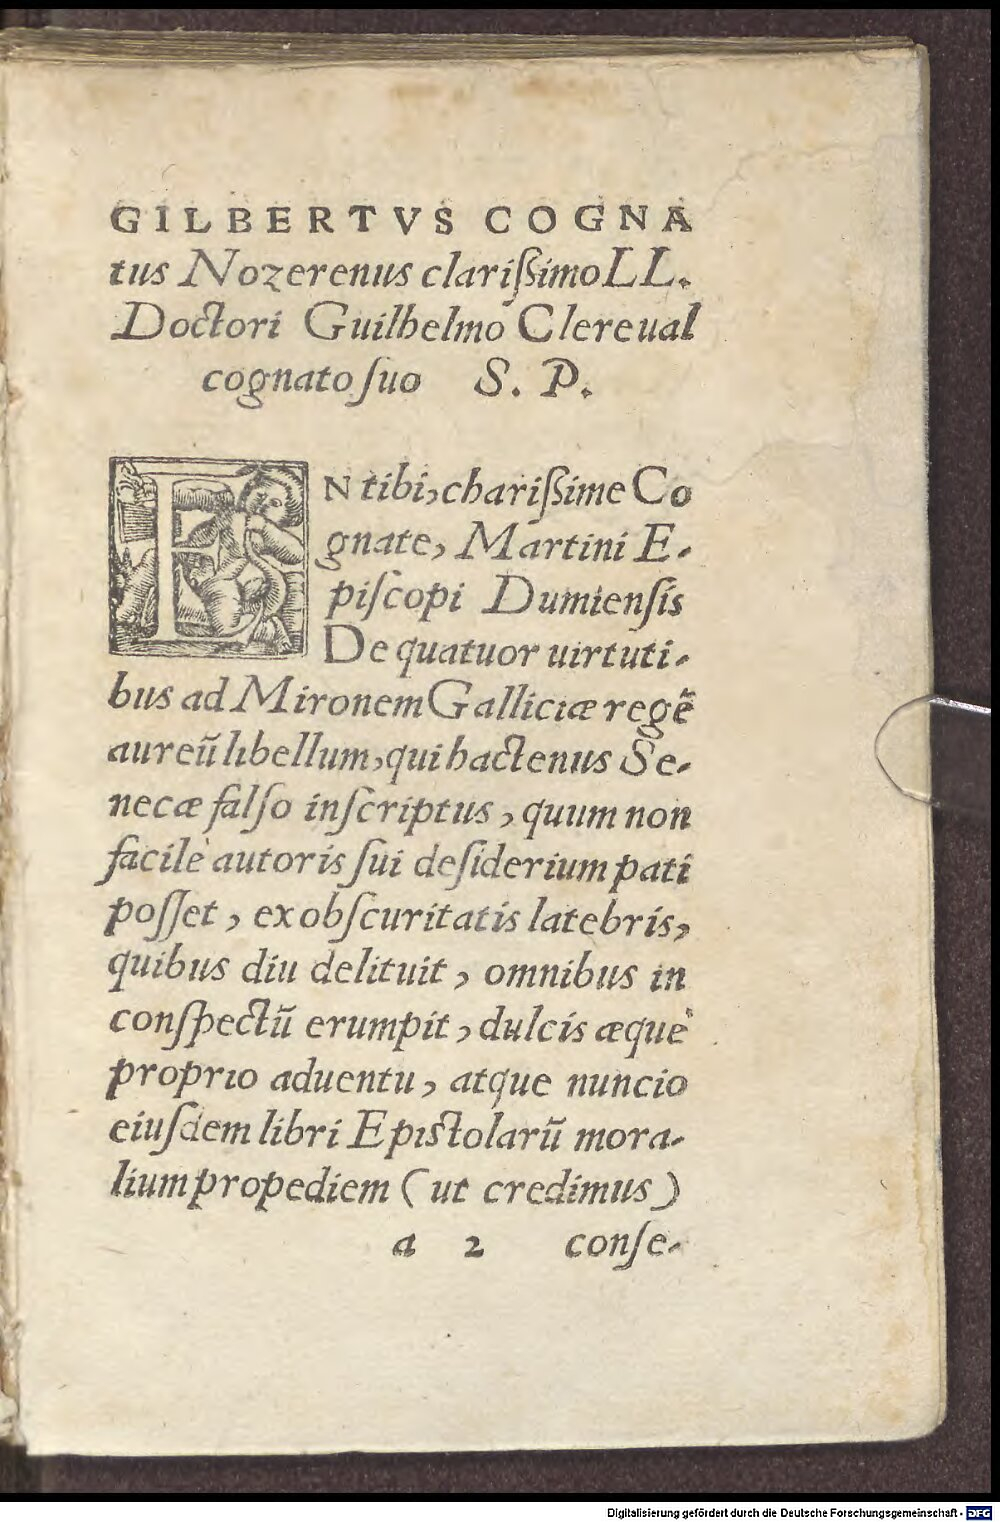 GILBERTVS COGNA
tus Nozerenus clarißimo LL.
Doctori Guilhelmo Clereual
cognato ſuo S. P.
EN tibi, charißime Co
gnate, Martini E-
piſcopi Dumienſis
De quatuor uirtuti-
bus ad Mironem Galliciæ regẽ
aureũ libellum, qui hactenus Se-
necæ falſo inſcriptus, quum non
facilè autoris ſui deſiderium pati
poſſet, ex obſcuritatis latebris,
quibus diu delituit, omnibus in
conſpectũ erumpit, dulcis æquè
proprio aduentu, atque nuncio
eiuſdem libri Epiſtolarũ mora-
lium propediem (ut credimus)
a 2 conſe-
Digitalisierung gefördert durch die Deutsche Forschungsgemeinschaft - DFG